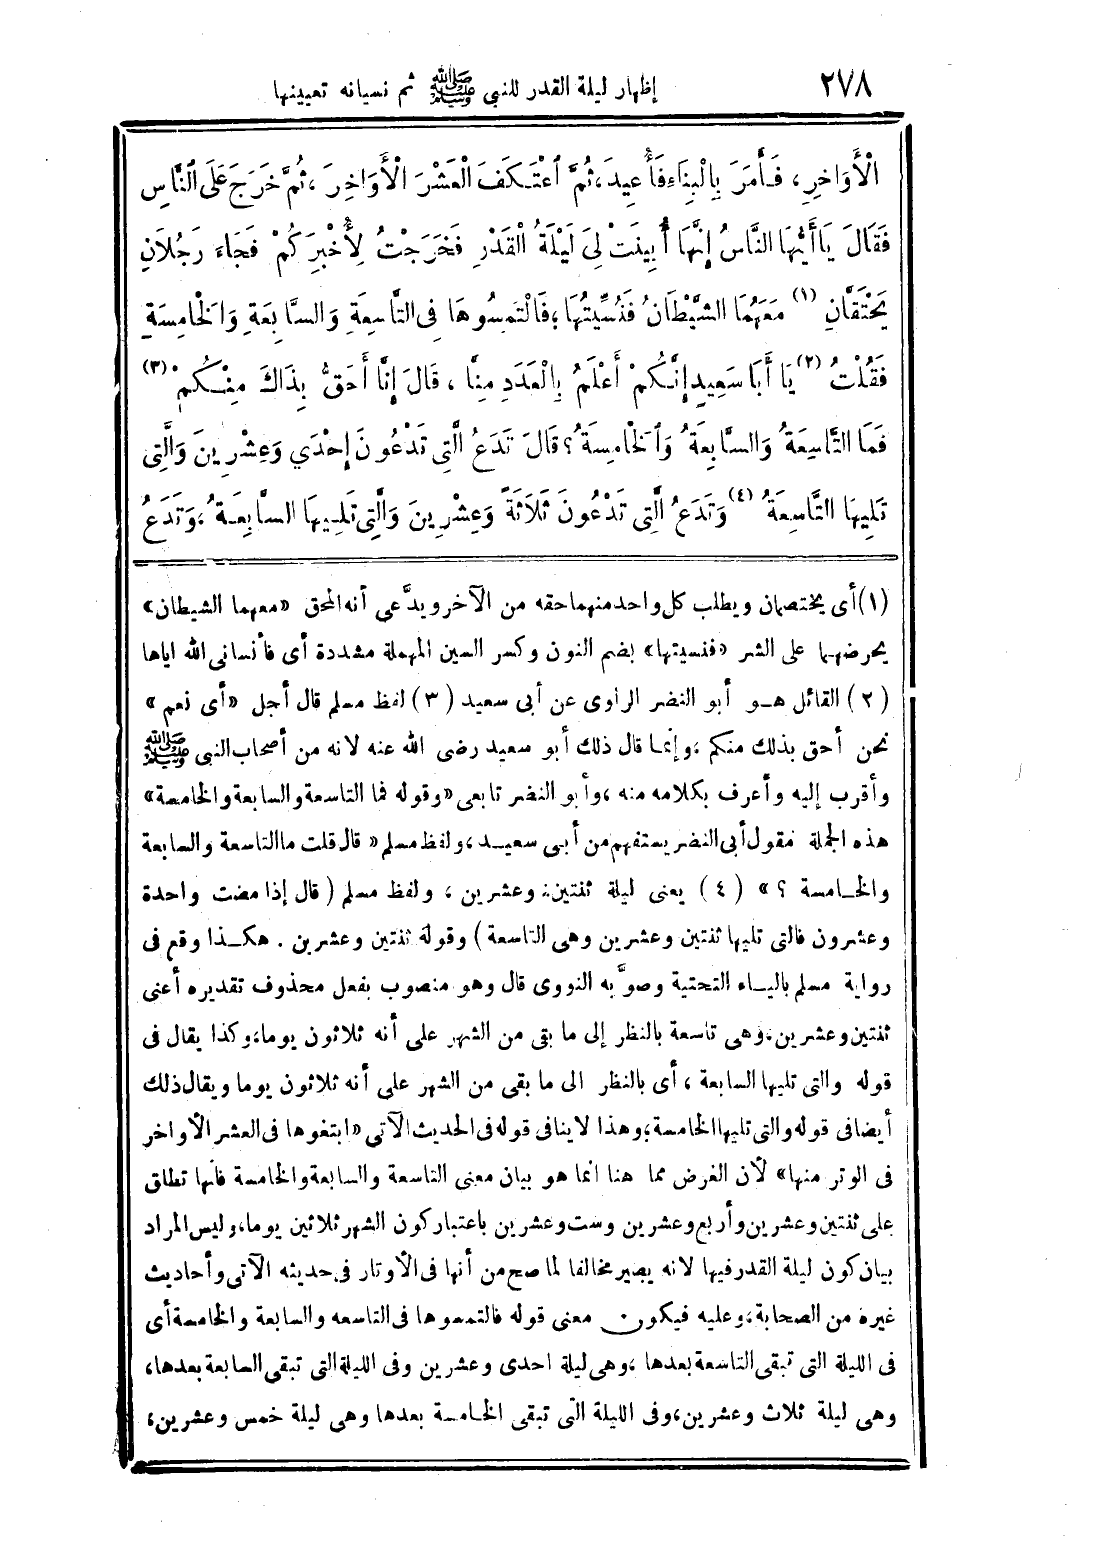 ٢٧٨
إظهار ليلة القدر للنبي ﷺ ثم نسيانه تعيينها
الْأَوَاخِرِ، فَأَمَرَ بِالْبِنَاءِ فَأُعِيدَ، ثُمَّ اعْتَكَفَ الْعَشْرَ الْأَوَاخِرَ، ثُمَّ خَرَجَ عَلَى النَّاسِ
فَقَالَ يَا أَيُّهَا النَّاسُ إِنَّهَا أُبِينَتْ لِيَ لَيْلَةُ الْقَدْرِ فَخَرَجْتُ لِأُخْبِرَكُمْ فَجَاءَ رَجُلَانِ
يَحْتَقَّانِ (١) مَعَهُمَا الشَّيْطَانُ فَنُسِّيتُهَا؛ فَالْتَمِسُوهَا فِي التَّاسِعَةِ وَالسَّابِعَةِ وَالْخَامِسَةِ
فَقُلْتُ (٢) يَا أَبَا سَعِيدٍ إِنَّكُمْ أَعْلَمُ بِالْعَدَدِ مِنَّا ، قَالَ إِنَّا أَحَقُّ بِذَاكَ مِنْكُمْ (٣)
فَمَا التَّاسِعَةُ وَالسَّابِعَةُ وَالْخَامِسَةُ؟ قَالَ تَدَعُ الَّتِي تَدْعُونَ إِحْدَي وَعِشْرِينَ وَالَّتِي
تَلِيهَا التَّاسِعَةُ (٤) وَتَدَعُ الَّتِي تَدْعُونَ ثَلَاثَةً وَعِشْرِينَ وَالَّتِي تَلِيهَا السَّابِعَةُ، وَتَدَعُ
(١) أى يختصمان ويطلب كل واحد منهما حقه من الآخر ويدَّعى أنه المحق «معهما الشيطان»
يحرضهما على الشر «فنسيتها» بضم النون وكسر السين المهملة مشددة أى فأنسانى الله اياها
(٢) القائل هو أبو النضر الراوى عن أبى سعيد (٣) لفظ مسلم قال أجل «أى نعم»
نحن أحق بذلك منكم ، وإنما قال ذلك أبو سعيد رضى الله عنه لانه من أصحاب النبى ﷺ
وأقرب إليه وأعرف بكلامه منه ، وأبو النضر تابعى «وقوله فما التاسعة والسابعة والخامسة»
هذه الجملة مقول أبى النضر يستفهم من أبى سعيد، ولفظ مسلم «قال قلت ما التاسعة والسابعة
والخامسة ؟» (٤) يعنى ليلة ثنتين وعشرين ، ولفظ مسلم (قال إذا مضت واحدة
وعشرون فالتى تليها ثنتين وعشرين وهى التاسعة) وقوله ثنتين وعشرين . هكذا وقع فى
رواية مسلم بالياء التحتية وصوَّبه النووى قال وهو منصوب بفعل محذوف تقديره أعنى
ثنتين وعشرين، وهى تاسعة بالنظر إلى ما بقى من الشهر على أنه ثلاثون يوما، وكذا يقال فى
قوله والتى تليها السابعة ، أى بالنظر الى ما بقى من الشهر على أنه ثلاثون يوما ويقال ذلك
أيضا فى قوله والتى تليها الخامسة؛ وهذا لا ينافى قوله فى الحديث الآتى «ابتغوها فى العشر الأواخر
فى الوتر منها» لأن الغرض مما هنا انما هو بيان معنى التاسعة والسابعة والخامسة فانها تطلق
على ثنتين وعشرين وأربع وعشرين وست وعشرين باعتبار كون الشهر ثلاثين يوما، وليس المراد
بيان كون ليلة القدر فيها لانه يصير مخالفا لما صح من أنها فى الأوتار فى حديثه الآتى وأحاديث
غيره من الصحابة، وعليه فيكون معنى قوله فالتمسوها فى التاسعه والسابعة والخامسة أى
فى الليلة التى تبقى التاسعة بعدها ، وهى ليلة احدى وعشرين وفى الليلة التى تبقى السابعة بعدها،
وهى ليلة ثلاث وعشرين، وفى الليلة التى تبقى الخامسة بعدها وهى ليلة خمس وعشرين،